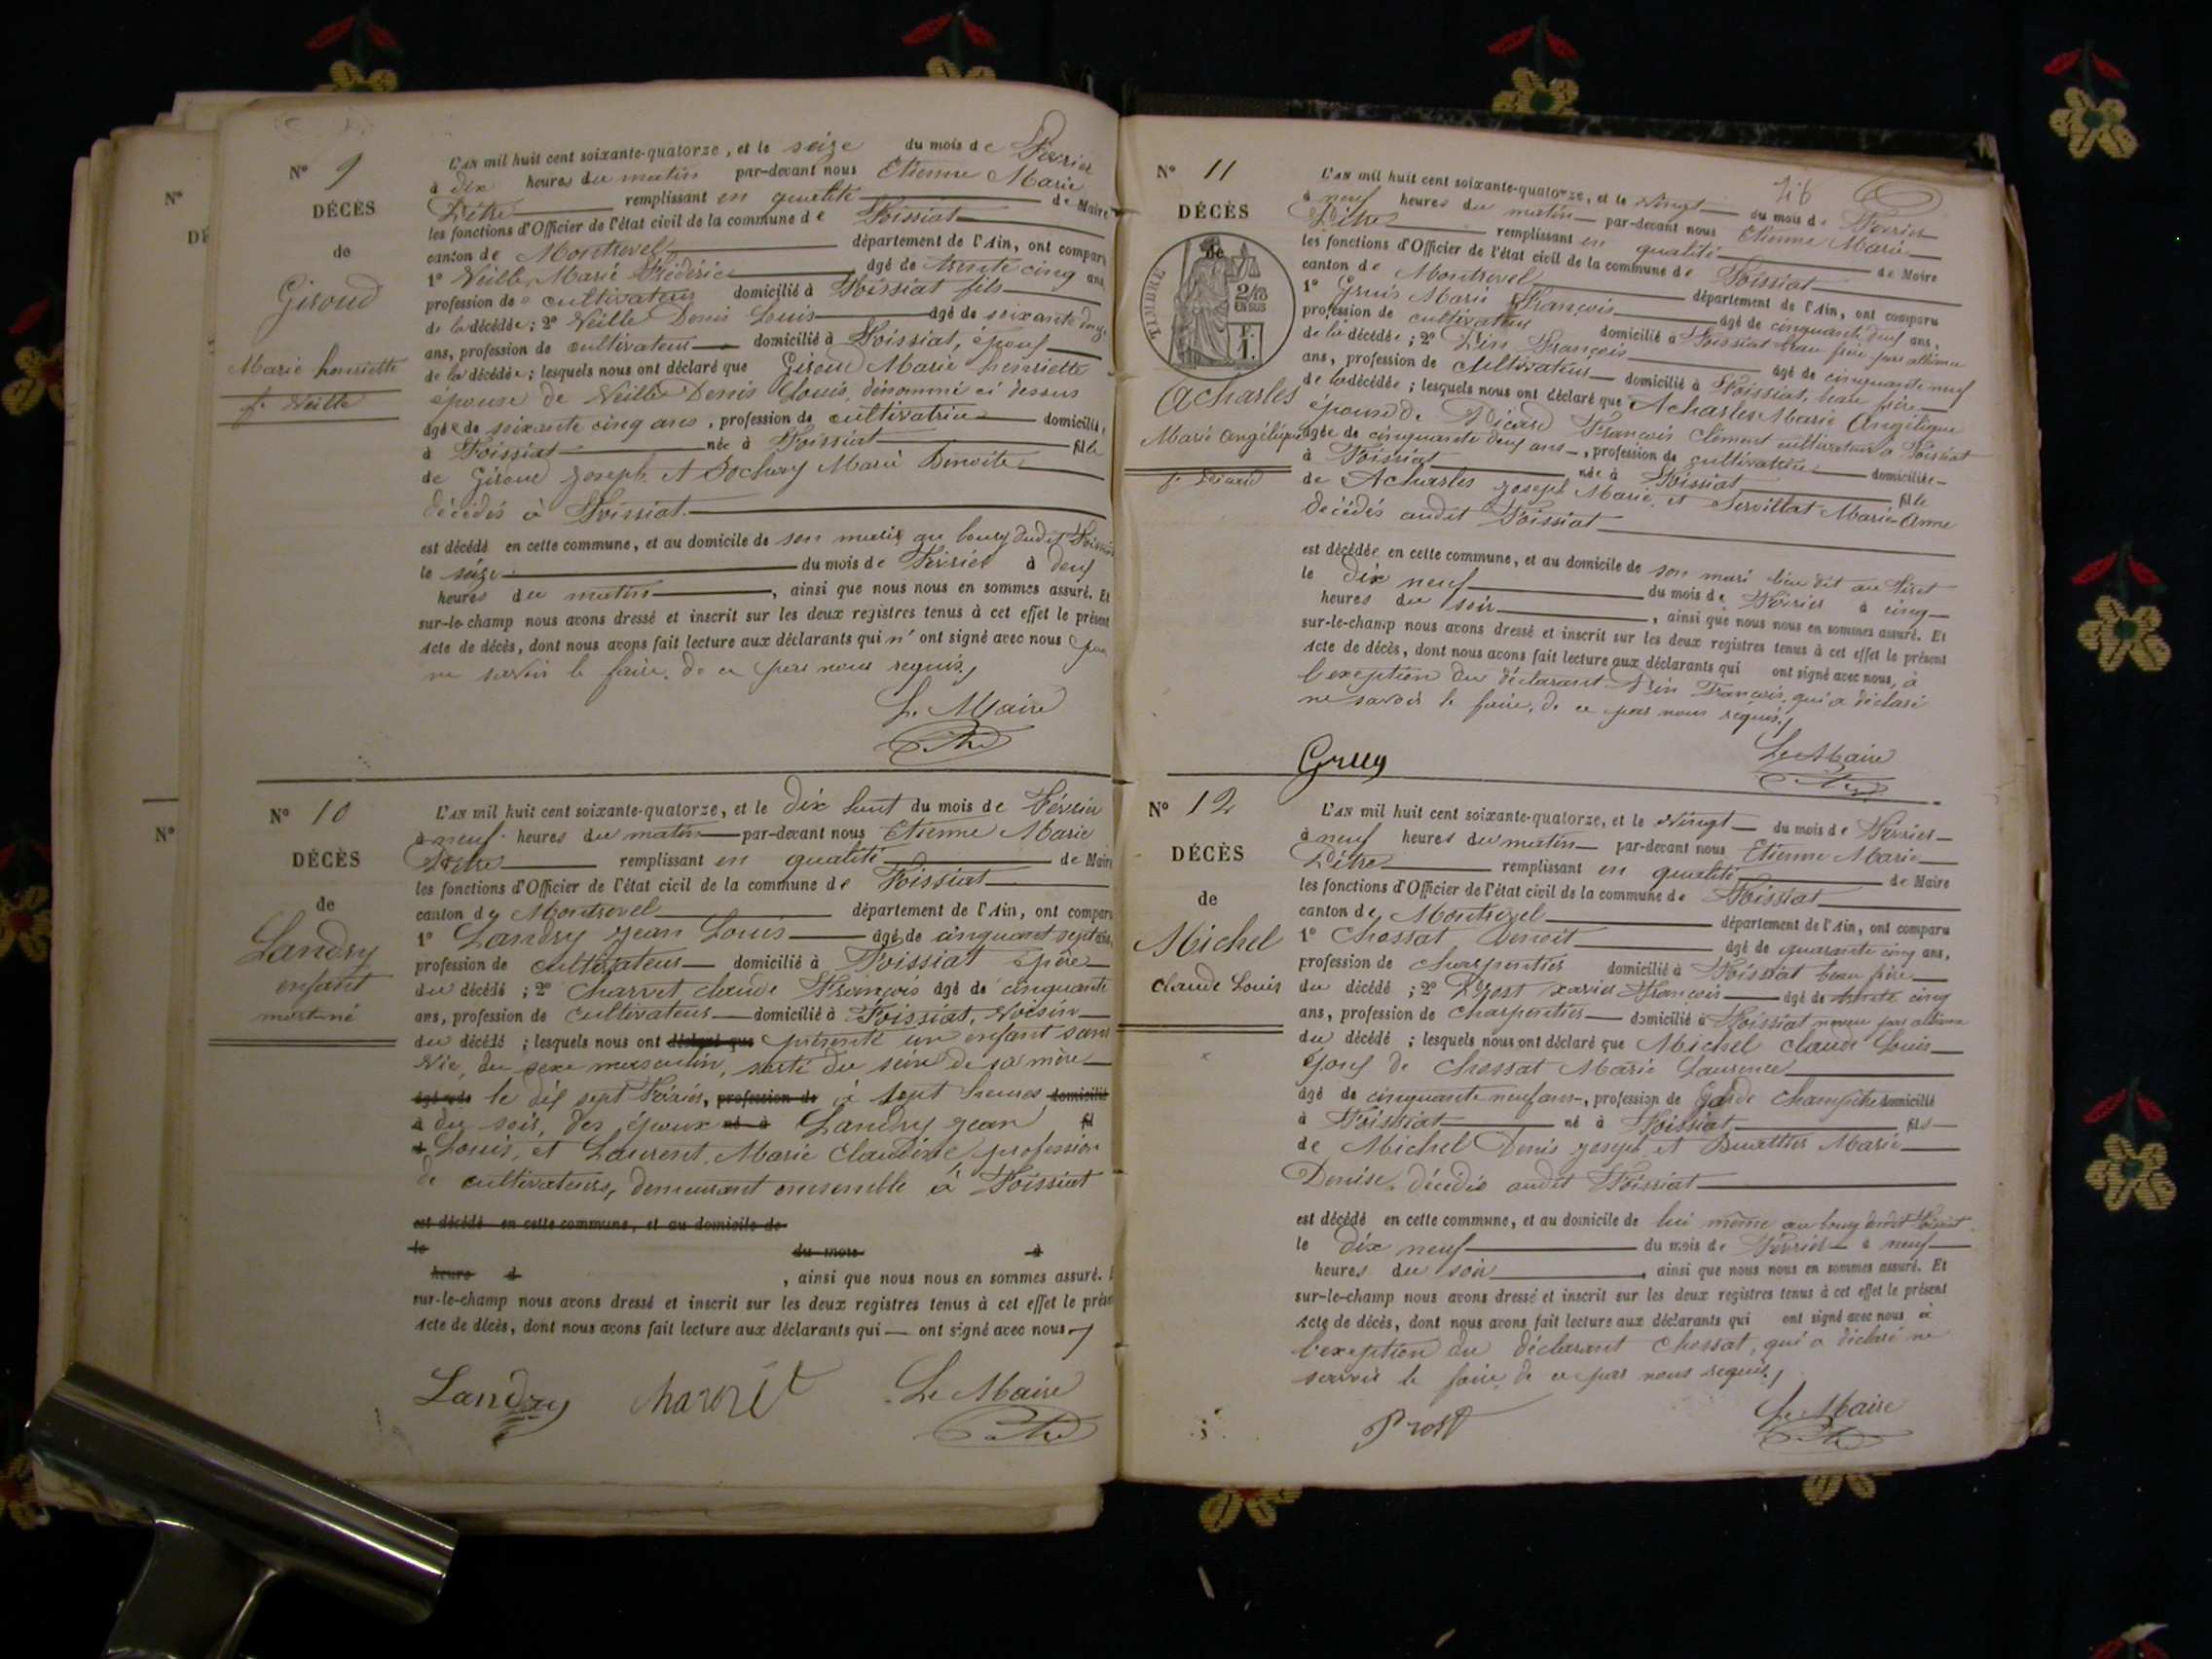 N° 9
DÉCÈS
de
Giroud
Marie henriette
fe Veille
L'AN mil huit cent soixante-quatorze, et le seize du mois de Février
à dix heures du matin par-devant nous Etienne Marie
remplissant en qualité de Maire
les fonctions d'Officier de l'état civil de la commune de Foissiat
canton de Montrevel département de l'Ain, ont comparu
1° Veille Marie Frédéric âgé de trente cinq ans
profession de cultivateur domicilié à Foissiat fils
de la décédée ; 2° Veille Denis Louis âgé de soixante
ans, profession de cultivateur domicilié à Foissiat, époux
de la décédée ; lesquels nous ont déclaré que Giroud Marie henriette
épouse de Veille Denis Louis, dénommé ci dessus
âgée de soixante cinq ans, profession de cultivatrice domicilié
à Foissiat née à Foissiat fille
de Giroud Joseph et Marie Benoite
décédés à Foissiat.
est décédé en cette commune, et au domicile de son mari au bourg dudit Foissiat
le seize du mois de Février à deux
heures du matin, ainsi que nous nous en sommes assuré. Et
sur-le-champ nous avons dressé et inscrit sur les deux registres tenus à cet effet le présent
acte de décès, dont nous avons fait lecture aux déclarants qui n'ont signé avec nous pour
ne savoir le faire, de ce par nous requis,
Le Maire
N° 10
DÉCÈS
de
Landry
enfant
mort-né
L'AN mil huit cent soixante-quatorze, et le dix huit du mois de Février
à neuf heures du matin par-devant nous Etienne Marie
remplissant en qualité de Maire
les fonctions d'Officier de l'état civil de la commune de Foissiat
canton de Montrevel département de l'Ain, ont comparu
1° Landry Jean Louis âgé de cinquante sept ans,
profession de cultivateur domicilié à Foissiat père
du décédé ; 2° Charvet claude François âgé de cinquante
ans, profession de cultivateur domicilié à Foissiat, voisin
du décédé ; lesquels nous ont déclaré que présenté un enfant sans
vie, du sexe masculin, sorti du sein de sa mère
âgé de le dix sept Février, profession de à sept heures domicilié
à du soir, des époux né à Landry Jean fil
d Louis, et Laurent Marie Claudine profession
de cultivateurs, demeurant ensemble à Foissiat
est décédé en cette commune, et au domicile de
le du mois à
heure d , ainsi que nous nous en sommes assuré.
sur-le-champ nous avons dressé et inscrit sur les deux registres tenus à cet effet le présent
acte de décès, dont nous avons fait lecture aux déclarants qui ont signé avec nous
Landry Charvet Le Maire
N° 11
DÉCÈS
de
TIMBRE
2/10
EN SUS
F.
1.
Acharles
Marie Angélique
L'AN mil huit cent soixante-quatorze, et le vingt du mois de Février
à neuf heures du matin par-devant nous Etienne Marie
remplissant en qualité de Maire
les fonctions d'Officier de l'état civil de la commune de Foissiat
canton de Montrevel département de l'Ain, ont comparu
1° Marie François âgé de cinquante deux ans,
profession de cultivateur domicilié à Foissiat beau frère par alliance
de la décédée ; 2° François âgé de cinquante neuf
ans, profession de cultivateur domicilié à Foissiat, beau frère
de la décédée ; lesquels nous ont déclaré que Acharles Marie Angélique
épouse de François Clément cultivateur à Foissiat
âgée de cinquante deux ans, profession de cultivatrice domiciliée
à Foissiat née à Foissiat fille
de Acharles Joseph Marie, et Servillat Marie Anne
décédés audit Foissiat
est décédée en cette commune, et au domicile de son mari lieu dit au
le dix neuf du mois de Février à cinq
heures du soir, ainsi que nous nous en sommes assuré. Et
sur-le-champ nous avons dressé et inscrit sur les deux registres tenus à cet effet le présent
acte de décès, dont nous avons fait lecture aux déclarants qui ont signé avec nous, à
l'exeption du déclarant François, qui a déclaré
ne savoir le faire, de ce par nous requis,
Le Maire
N° 12
DÉCÈS
de
Michel
claude Louis
L'AN mil huit cent soixante-quatorze, et le vingt du mois de Février
à neuf heures du matin par-devant nous Etienne Marie
remplissant en qualité de Maire
les fonctions d'Officier de l'état civil de la commune de Foissiat
canton de Montrevel département de l'Ain, ont comparu
1° Chossat Benoit âgé de quarante cinq ans,
profession de charpentier domicilié à Foissiat beau frère
du décédé ; 2° François âgé de trente cinq
ans, profession de charpentier domicilié à Foissiat neveu par alliance
du décédé ; lesquels nous ont déclaré que Michel Claude Louis
époux de Chossat Marie Laurence
âgé de cinquante neuf ans, profession de Garde Champêtre domicilié
à Foissiat né à Foissiat fils
de Michel Denis Joseph et Marie
Denise, décédés audit Foissiat
est décédé en cette commune, et au domicile de lui même au bourg dudit Foissiat
le dix neuf du mois de Février à neuf
heures du soir, ainsi que nous nous en sommes assuré. Et
sur-le-champ nous avons dressé et inscrit sur les deux registres tenus à cet effet le présent
acte de décès, dont nous avons fait lecture aux déclarants qui ont signé avec nous à
l'exeption du déclarant Chossat, qui a déclaré ne
savoir le faire de ce par nous requis,
Prost Le Maire